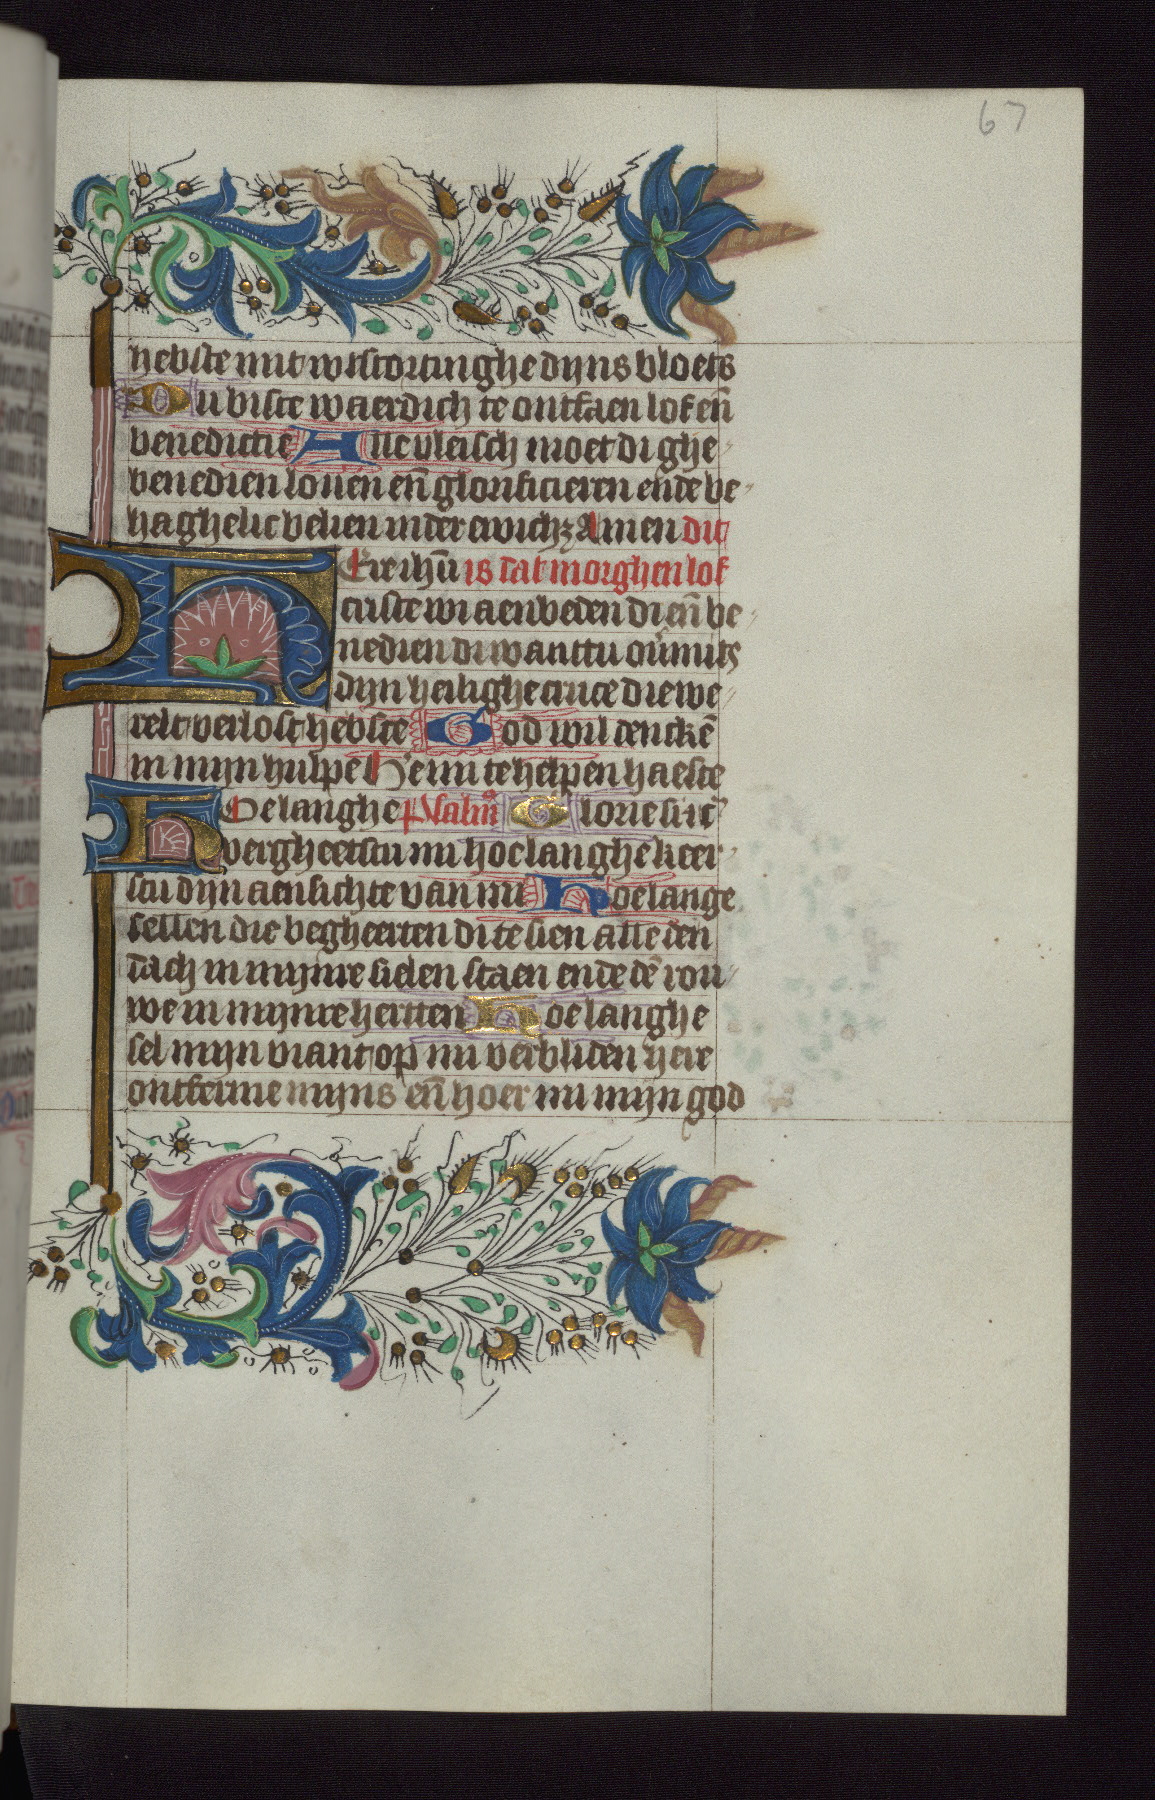 67
hebste mit wtstortinghe dijns bloets
Du biste waerdich te ontfaen lof en̄
benedictie Alle vleisch moet di ghe
benedien louen en̄ glorificieren ende be
haghelic belien inder ewich₃ Amen dit
Ere ih̄u is dat morghen lof
criste wi aenbeden di en̄ be
nedien di wanttu ou̇mits
dijn heilighe cruce die we
relt verlost hebste God wil dencke̅
in mijn hulpe Here mi te helpen haeste
Oe langhe psalm Glorie si
vergheetstu mi hoe langhe keer
stu dijn aensichte van mi Hoe lange
sellen die begheerten di te sien alle den
dach in mijnre sielen staen ende de̅ rou
we in mijnre hertten Hoe langhe
sel mijn viant op mi verbliden here
ontferme mijns en̄ hoer mi mijn god